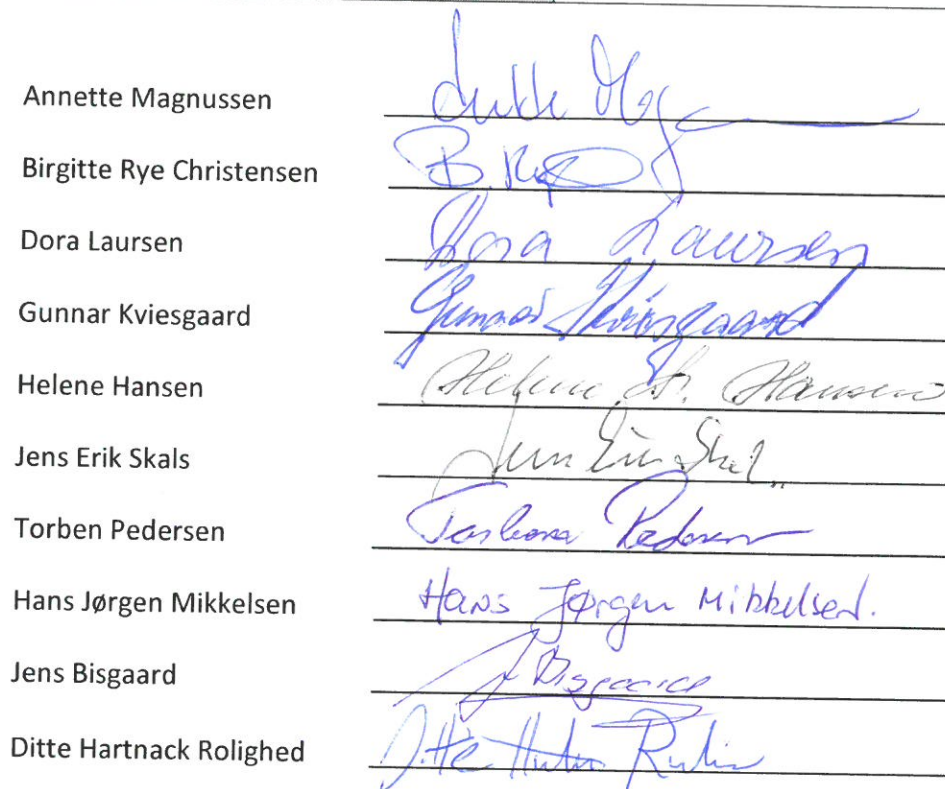 Annette Magnussen
Birgitte Rye Christensen
Dora Laursen Dora Laursen
Gunnar Kviesgaard Gunnar Kviesgaard
Helene Hansen Helene St. Hansen
Jens Erik Skals Jens Erik Skals
Torben Pedersen Torben Pedersen
Hans Jørgen Mikkelsen Hans Jørgen Mikkelsen.
Jens Bisgaard J Bisgaard
Ditte Hartnack Rolighed Ditte